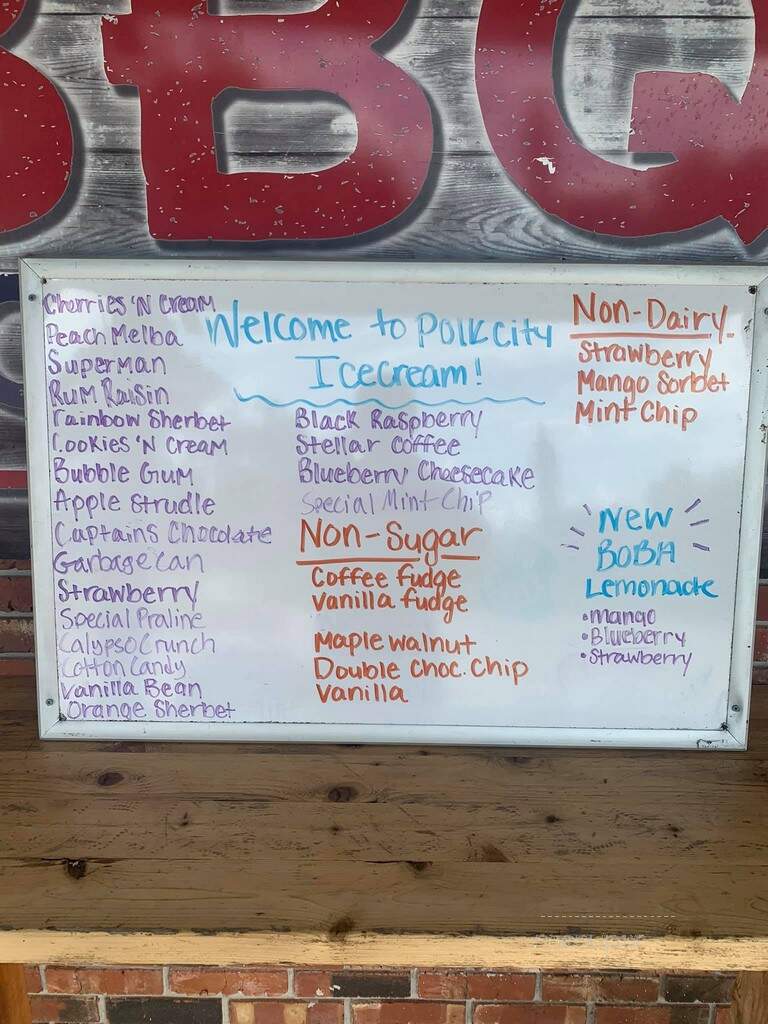 BBQ
Welcome to Polkcity
Icecream!
Cherries 'N Cream
Peach Melba
Superman
Rum Raisin
rainbow Sherbet
Cookies 'N Cream
Bubble Gum
Apple Strudle
Captains Chocolate
Garbage Can
Strawberry
Special Praline
Calypso Crunch
Cotton Candy
Vanilla Bean
Orange Sherbet
Black Raspberry
Stellar Coffee
Blueberry Cheesecake
Special Mint Chip
Non-Sugar
Coffee fudge
Vanilla fudge
Maple walnut
Double Choc. Chip
Vanilla
Non-Dairy
Strawberry
Mango Sorbet
Mint Chip
New
BOBA
Lemonade
•mango
•Blueberry
•Strawberry